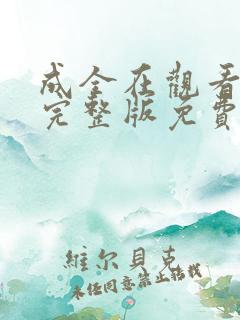 成全在觀看
完整版免費
維尔貝克
未经同意禁止转载